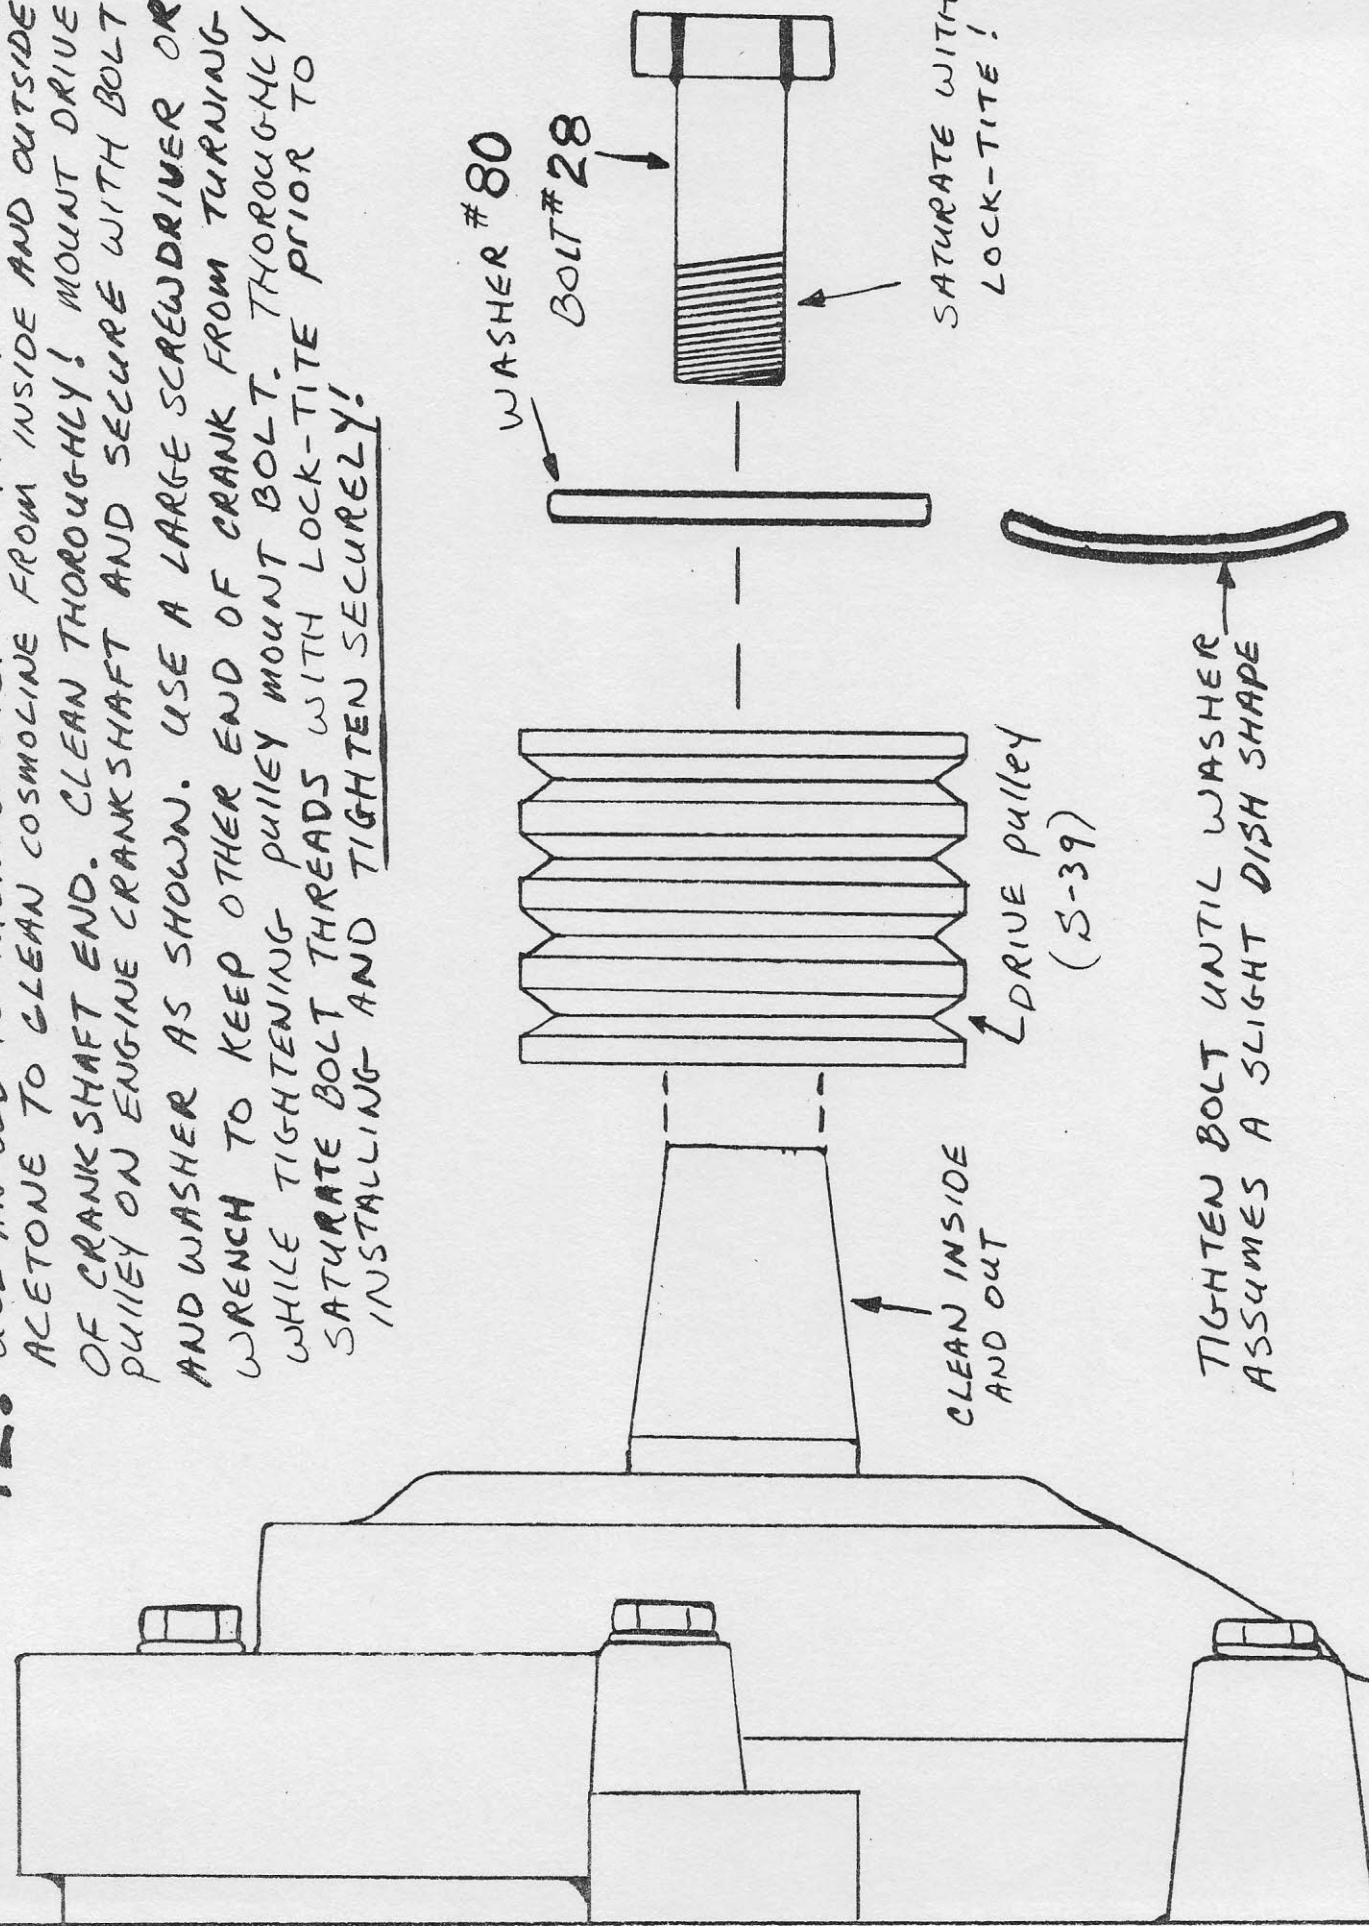 ACETONE TO CLEAN COSMOLINE FROM INSIDE AND OUTSIDE
OF CRANKSHAFT END. CLEAN THOROUGHLY! MOUNT DRIVE
PULLEY ON ENGINE CRANKSHAFT AND SECURE WITH BOLT
AND WASHER AS SHOWN. USE A LARGE SCREWDRIVER OR
WRENCH TO KEEP OTHER END OF CRANK FROM TURNING
WHILE TIGHTENING PULLEY MOUNT BOLT. THOROUGHLY
SATURATE BOLT THREADS WITH LOCK-TITE PRIOR TO
INSTALLING AND TIGHTEN SECURELY!
WASHER #80
BOLT #28
SATURATE WITH
LOCK-TITE!
DRIVE PULLEY
(S-39)
CLEAN INSIDE
AND OUT
TIGHTEN BOLT UNTIL WASHER
ASSUMES A SLIGHT DISH SHAPE